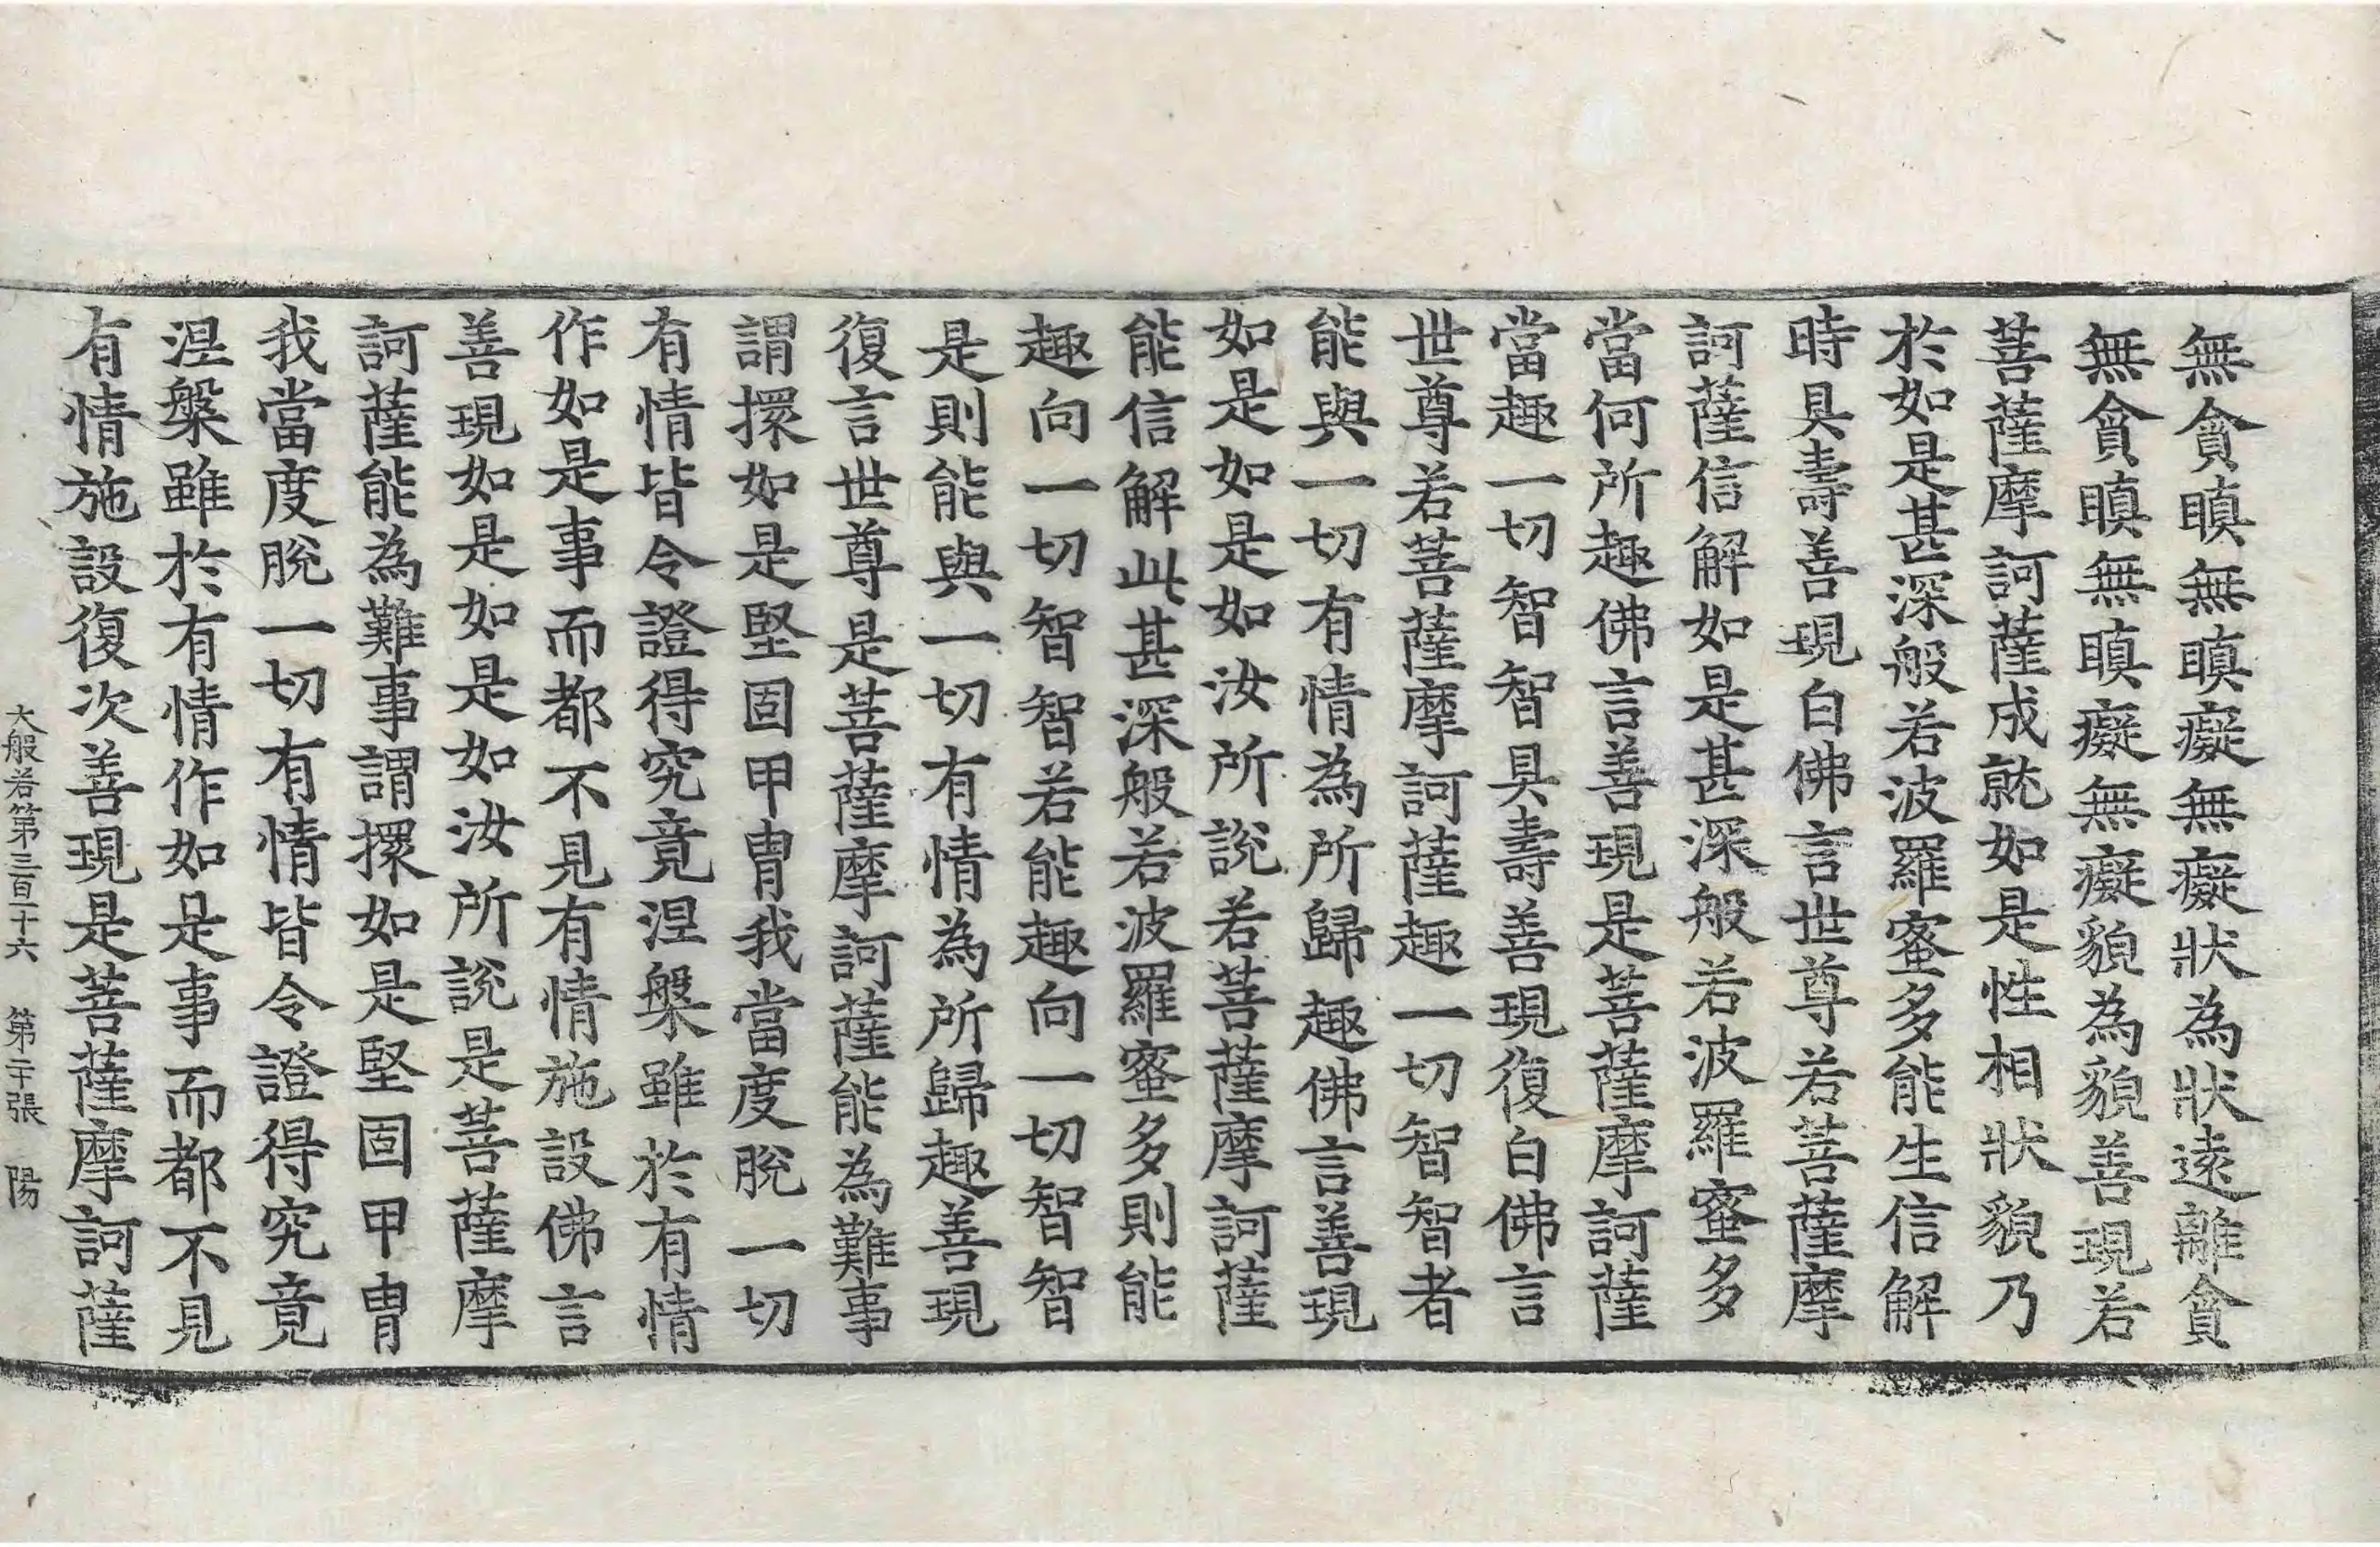 無貪瞋無瞋癡無癡狀為狀遠離貪
無貪瞋無瞋癡無癡貌為貌善現若
菩薩摩訶薩成就如是性相狀貌乃
於如是甚深般若波羅蜜多能生信解
時具壽善現白佛言世尊若菩薩摩
訶薩信解如是甚深般若波羅蜜多
當何所趣佛言善現是菩薩摩訶薩
當趣一切智智具壽善現復白佛言
世尊若菩薩摩訶薩趣一切智智者
能與一切有情為所歸趣佛言善現
如是如是如汝所說若菩薩摩訶薩
能信解此甚深般若波羅蜜多則能
趣向一切智智若能趣向一切智智
是則能與一切有情為所歸趣善現
復言世尊是菩薩摩訶薩能為難事
謂擐如是堅固甲冑我當度脫一切
有情皆令證得究竟涅槃雖於有情
作如是事而都不見有情施設佛言
善現如是如是如汝所說是菩薩摩
訶薩能為難事謂擐如是堅固甲冑
我當度脫一切有情皆令證得究竟
涅槃雖於有情作如是事而都不見
有情施設復次善現是菩薩摩訶薩
大般若第三百一十六 第二十張 陽